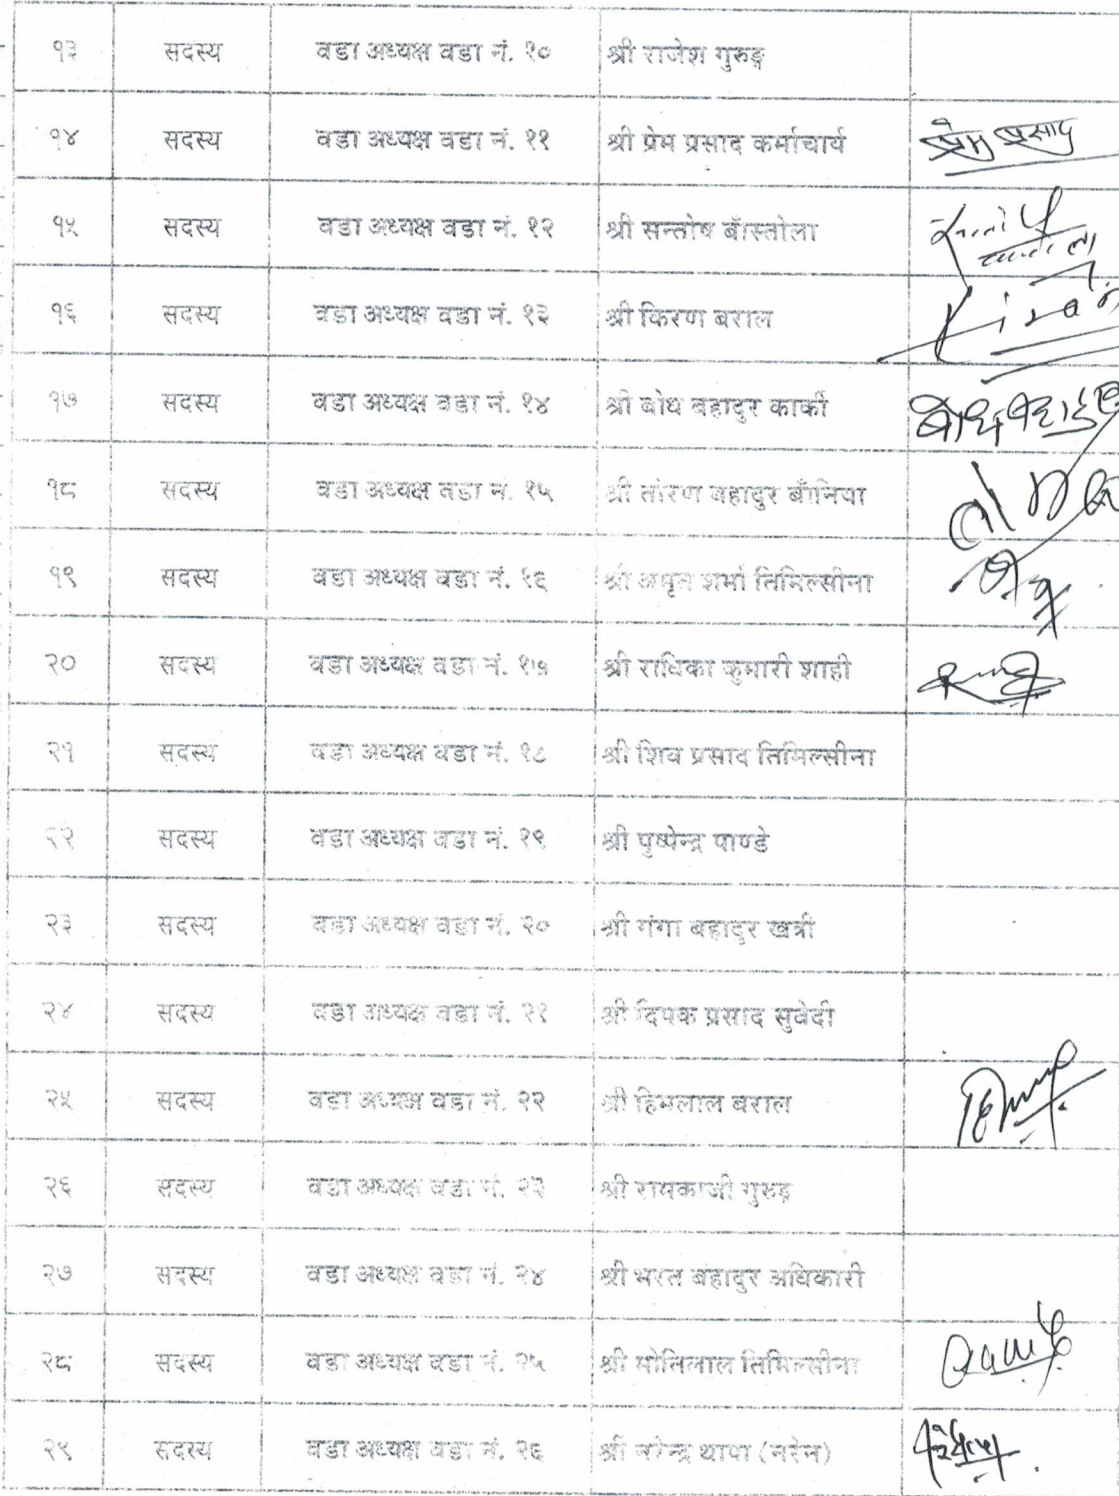 १३ सदस्य वडा अध्यक्ष वडा नं. १० श्री राजेश गुरुङ्ग
१४ सदस्य वडा अध्यक्ष वडा नं. ११ श्री प्रेम प्रसाद कर्माचार्य प्रेम प्रसाद
१५ सदस्य वडा अध्यक्ष वडा नं. १२ श्री सन्तोष बाँस्तोला
१६ सदस्य वडा अध्यक्ष वडा नं. १३ श्री किरण बराल Kiran
१७ सदस्य वडा अध्यक्ष वडा नं. १४ श्री बोध बहादुर कार्की बोध बहादुर
१८ सदस्य वडा अध्यक्ष वडा नं. १५ श्री तोरण बहादुर बाँनिया
१९ सदस्य वडा अध्यक्ष वडा नं. १६ श्री अमृत शर्मा तिमिल्सीना
२० सदस्य वडा अध्यक्ष वडा नं. १७ श्री राधिका कुमारी शाही
२१ सदस्य वडा अध्यक्ष वडा नं. १८ श्री शिव प्रसाद तिमिल्सीना
२२ सदस्य वडा अध्यक्ष वडा नं. १९ श्री पुष्पेन्द्र पाण्डे
२३ सदस्य वडा अध्यक्ष वडा नं. २० श्री गंगा बहादुर खत्री
२४ सदस्य वडा अध्यक्ष वडा नं. २१ श्री दिपक प्रसाद सुवेदी
२५ सदस्य वडा अध्यक्ष वडा नं. २२ श्री हिमलाल बराल
२६ सदस्य वडा अध्यक्ष वडा नं. २३ श्री रामकाजी गुरुङ्ग
२७ सदस्य वडा अध्यक्ष वडा नं. २४ श्री भरत बहादुर अधिकारी
२८ सदस्य वडा अध्यक्ष वडा नं. २५ श्री मोतिलाल तिमिल्सीना
२९ सदस्य वडा अध्यक्ष वडा नं. २६ श्री नरेन्द्र थापा (नरेन)